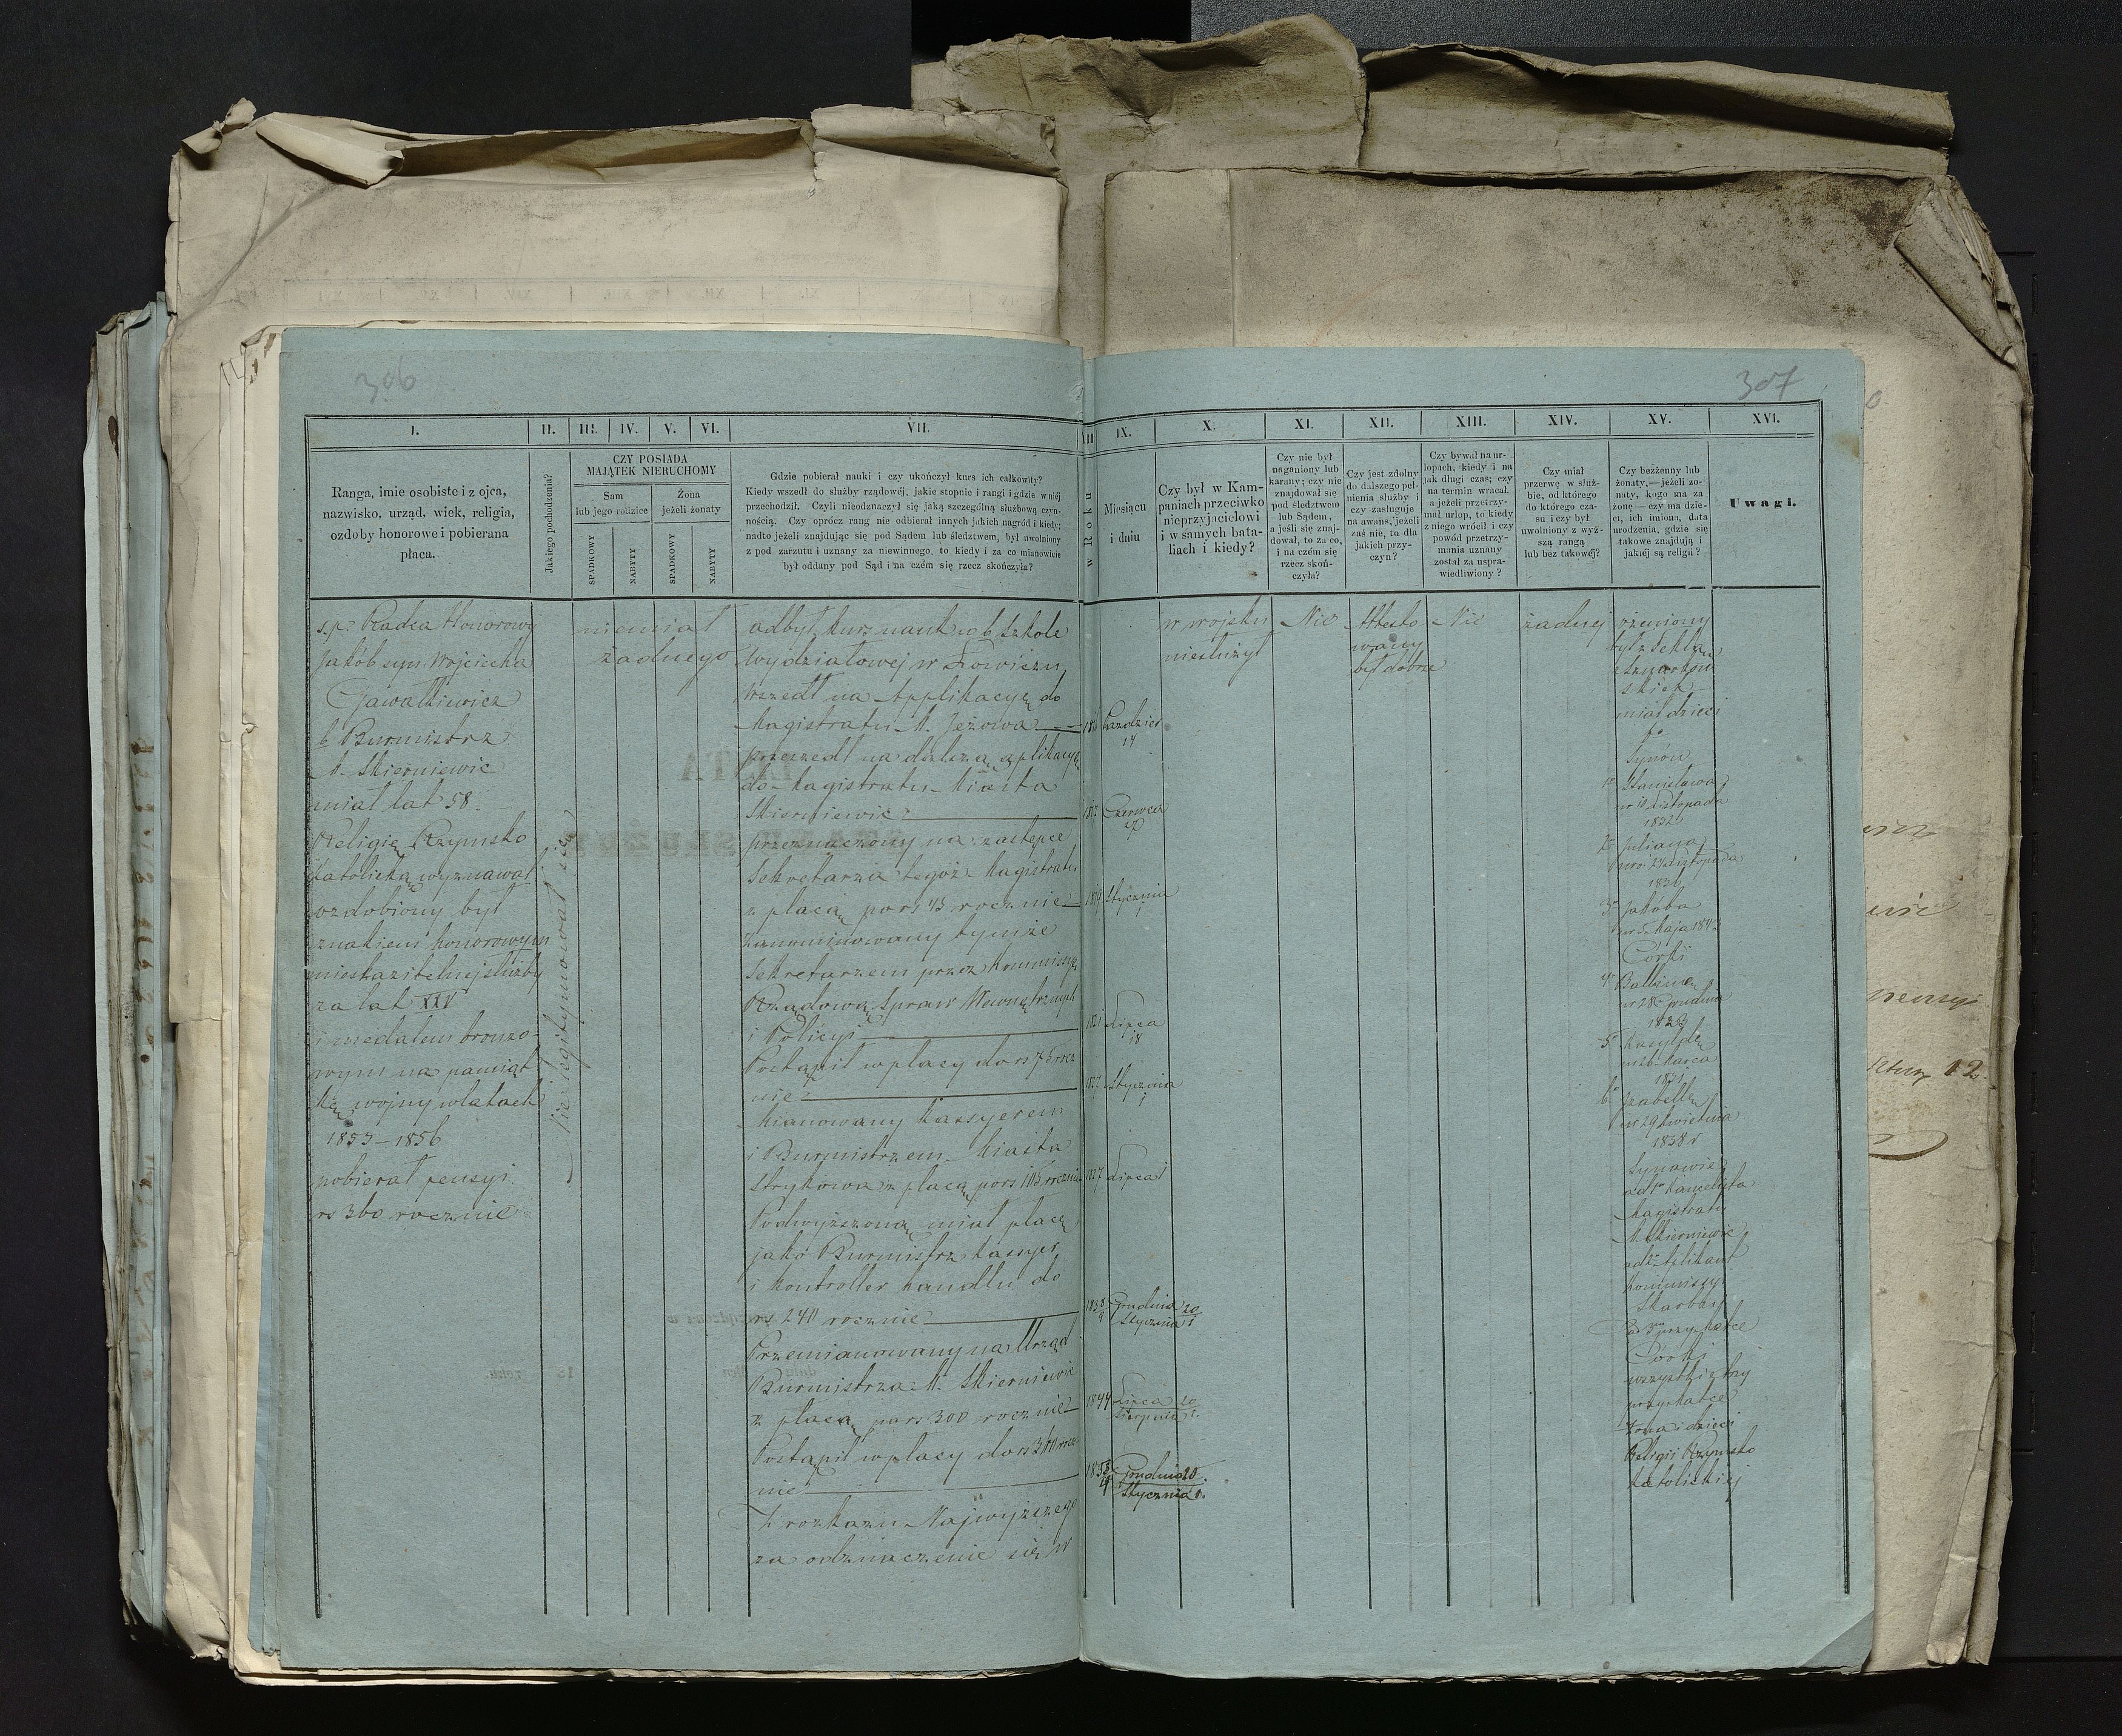 306
I.
II.
III.
IV.
V.
VI.
VII.
Ranga, imie osobiste i z ojca,
nazwisko, urząd, wiek, religia,
ozdoby honorowe i pobierana
płaca.
Jakiego pochodzenia?
CZY POSIADA
MAJĄTEK NIERUCHOMY
Sam
lub jego rodzice
Żona
jeżeli żonaty
SPADKOWY
NABYTY
SPADKOWY
NABYTY
Gdzie pobierał nauki i czy ukończył kurs ich całkowity?
Kiedy wszedł do służby rządowéj, jakie stopnie i rangi i gdzie w niéj
przechodził. Czyli nieodznaczył się jaką szczególną służbową czyn-
nością. Czy oprócz rang nie odbierał innych jakich nagród i kiedy;
nadto jeżeli znajdując się pod Sądem lub śledztwem, był uwolniony
z pod zarzutu i uznany za niewinnego, to kiedy i za co mianowicie
był oddany pod Sąd i na czém się rzecz skończyła?
ś.p. Radca Honorowy
Jakób syn Wojciecha
Gawałkiewicz
b Burmistrz
M. Skierniewic
miał lat 58.
Religię Rzymsko
Katolicką wyznawał
ozdobiony był
znakiem honorowym
nieskazitelnej służby
za lat XXV
i medalem bronzo-
wym na pamiąt
kę wojny w latach
1853–1856
pobierał pensyi
rs 360 rocznie
Nie legitymował się
niemiał
żadnego
odbył kurs nauk w b Szkole
Wydziałowej w Łowiczu
wszedł na Applikacyę do
Magistratu M. Jeżowa
przeszedł na dalszą aplikacyę
do Magistratu Miasta
Skierniewic
przeznaczony na zastępcę
Sekretarza tegoż Magistratu
z płacą po rs 45 rocznie
Zanominowany tymże
Sekretarzem przez Kommissyę
Rządową Spraw Wewnętrznych
i Policyi
Postąpił w płacy do rs 75 rocz
nie
Mianowany Kassyerem
i Burmistrzem Miasta
Strykowa z płacą po rs 105 rocznie
Podwyższoną miał płacę
jako Burmistrz Kassyer
i Kontroller handlu do
rs 240 rocznie
Przemianowany na Urząd
Burmistrza M. Skierniewic
z płacą po rs 300 rocznie
Postąpił w płacy do rs 360 rocz
nie
Z rozkazu Najwyższego
za odznaczenie się w
307
IX.
X.
XI.
XII.
XIII.
XIV.
XV.
XVI.
w Roku
Miesiącu
i dniu
Czy był w Kam-
paniach przeciwko
nieprzyjacielowi
i w samych bata-
liach i kiedy?
Czy nie był
naganiony lub
karany; czy nie
znajdował się
pod śledztwem
lub Sądem,
a jeśli się znaj-
dował, to za co,
i na czém się
rzecz skoń-
czyła?
Czy jest zdolny
do dalszego peł-
nienia służby i
czy zasługuje
na awans, jeżeli
zaś nie, to dla
jakich przy-
czyn?
Czy bywał na ur-
lopach, kiedy i na
jak długi czas; czy
na termin wracał,
a jeżeli przetrzy-
mał urlop, to kiedy
z niego wrócił i czy
powód przetrzy-
mania uznany
został za uspra-
wiedliwiony?
Czy miał
przerwę w służ-
bie, od którego
do którego cza-
su i czy był
uwolniony z wyż-
szą rangą
lub bez takowéj?
Czy bezżenny lub
żonaty,—jeżeli żo-
naty, kogo ma za
żonę—czy ma dzie-
ci, ich imiona, data
urodzenia, gdzie się
takowe znajdują i
jakiéj są religii?
Uwagi.
Paździer
14
Czerwca
Stycznia
1
Lipca
18
Stycznia
1
1827 Lipca 1
1838/9 Grudnia 20
Stycznia 1
1844 Lipca 20
Sierpnia 1.
1853/4 Grudnia 20.
Stycznia 1.
w wojsku
niesłużył
Nie
Attesto
wany
był dobrze
Nie
żadnej
ożeniony
był z Teklą
miał dzieci
6
Synów
1° Stanisława
ur 11 Listopada
1826
2° Juliana
1836
3° Jakóba
ur 5 Maja
Córki
4° Balbinę
ur 28 grudnia
5°
ur 26 Marca
1831
6° Izabellę
ur 29 Kwietnia
1838 r
Synowie
ad 1° Kancelista
Magistratu
M. Skierniewic
ad 2° Aplikant
Kommissyi
Skarbu
ad 3° przy Matce
Córki
wszystkie trzy
przy Matce
Żona i dzieci
Religii Rzymsko
Katolickiej